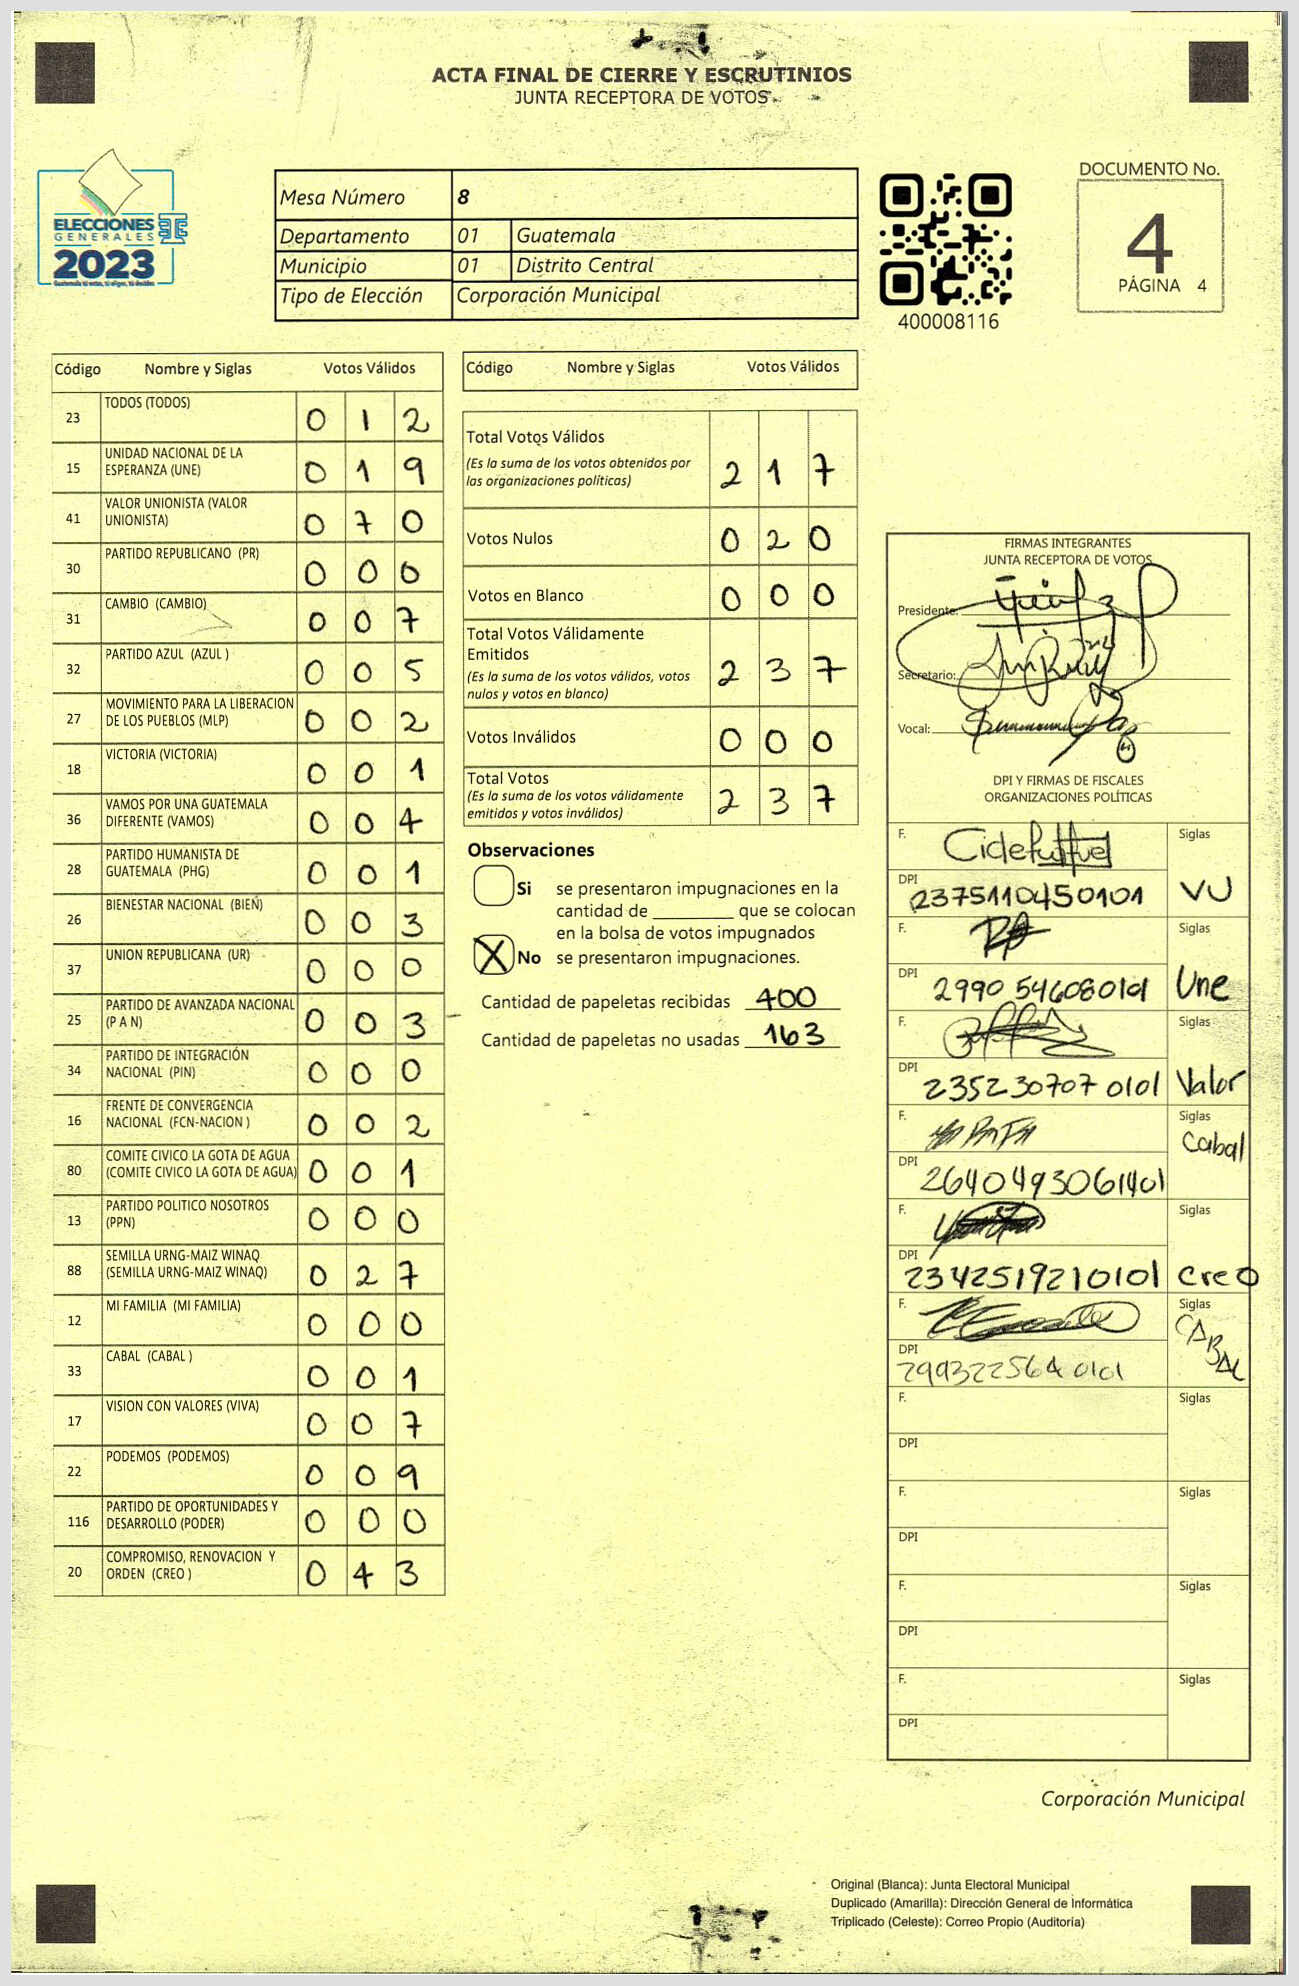 ACTA FINAL DE CIERRE Y ESCRUTINIOS
JUNTA RECEPTORA DE VOTOS
ELECCIONES
GENERALES
2023
Mesa Número 8
Departamento 01 Guatemala
Municipio 01 Distrito Central
Tipo de Elección Corporación Municipal
400008116
DOCUMENTO No.
4
PÁGINA 4
Código Nombre y Siglas Votos Válidos
23 TODOS (TODOS) 0 1 2
15 UNIDAD NACIONAL DE LA
ESPERANZA (UNE) 0 1 9
41 VALOR UNIONISTA (VALOR
UNIONISTA) 0 7 0
30 PARTIDO REPUBLICANO (PR) 0 0 0
31 CAMBIO (CAMBIO) 0 0 7
32 PARTIDO AZUL (AZUL ) 0 0 5
27 MOVIMIENTO PARA LA LIBERACION
DE LOS PUEBLOS (MLP) 0 0 2
18 VICTORIA (VICTORIA) 0 0 1
36 VAMOS POR UNA GUATEMALA
DIFERENTE (VAMOS) 0 0 4
28 PARTIDO HUMANISTA DE
GUATEMALA (PHG) 0 0 1
26 BIENESTAR NACIONAL (BIEN) 0 0 3
37 UNION REPUBLICANA (UR) 0 0 0
25 PARTIDO DE AVANZADA NACIONAL
(P A N) 0 0 3
34 PARTIDO DE INTEGRACIÓN
NACIONAL (PIN) 0 0 0
16 FRENTE DE CONVERGENCIA
NACIONAL (FCN-NACION ) 0 0 2
80 COMITE CIVICO LA GOTA DE AGUA
(COMITE CIVICO LA GOTA DE AGUA) 0 0 1
13 PARTIDO POLITICO NOSOTROS
(PPN) 0 0 0
88 SEMILLA URNG-MAIZ WINAQ
(SEMILLA URNG-MAIZ WINAQ) 0 2 7
12 MI FAMILIA (MI FAMILIA) 0 0 0
33 CABAL (CABAL ) 0 0 1
17 VISION CON VALORES (VIVA) 0 0 7
22 PODEMOS (PODEMOS) 0 0 9
116 PARTIDO DE OPORTUNIDADES Y
DESARROLLO (PODER) 0 0 0
20 COMPROMISO, RENOVACION Y
ORDEN (CREO ) 0 4 3
Código Nombre y Siglas Votos Válidos
Total Votos Válidos
(Es la suma de los votos obtenidos por
las organizaciones políticas) 2 1 7
Votos Nulos 0 2 0
Votos en Blanco 0 0 0
Total Votos Válidamente
Emitidos
(Es la suma de los votos válidos, votos
nulos y votos en blanco) 2 3 7
Votos Inválidos 0 0 0
Total Votos
(Es la suma de los votos válidamente
emitidos y votos inválidos) 2 3 7
Observaciones
Si se presentaron impugnaciones en la
cantidad de ________ que se colocan
en la bolsa de votos impugnados
X No se presentaron impugnaciones.
Cantidad de papeletas recibidas 400
Cantidad de papeletas no usadas 163
FIRMAS INTEGRANTES
JUNTA RECEPTORA DE VOTOS
Presidente:
Secretario:
Vocal:
DPI Y FIRMAS DE FISCALES
ORGANIZACIONES POLÍTICAS
F. Siglas
DPI 2375110450101 VU
F. Siglas
DPI 2990 54608 0101 Une
F. Siglas
DPI 235230707 0101 Valor
F. Siglas
DPI 2640493061401 Cabal
F. Siglas
DPI 2342519210101 Creo
F. Siglas
DPI 299322564 0101 CABAL
F. Siglas
DPI
F. Siglas
DPI
F. Siglas
DPI
F. Siglas
DPI
Corporación Municipal
Original (Blanca): Junta Electoral Municipal
Duplicado (Amarilla): Dirección General de Informática
Triplicado (Celeste): Correo Propio (Auditoría)